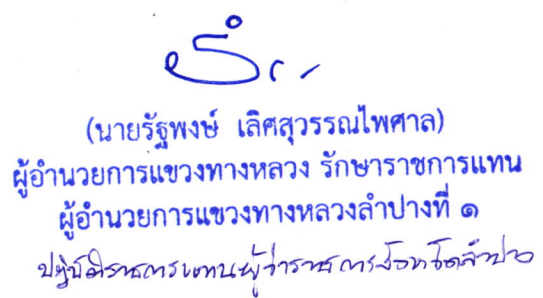 (นายรัฐพงษ์ เลิศสุวรรณไพศาล)
ผู้อำนวยการแขวงทางหลวง รักษาราชการแทน
ผู้อำนวยการแขวงทางหลวงลำปางที่ ๑
ปฏิบัติราชการแทนผู้ว่าราชการจังหวัดลำปาง